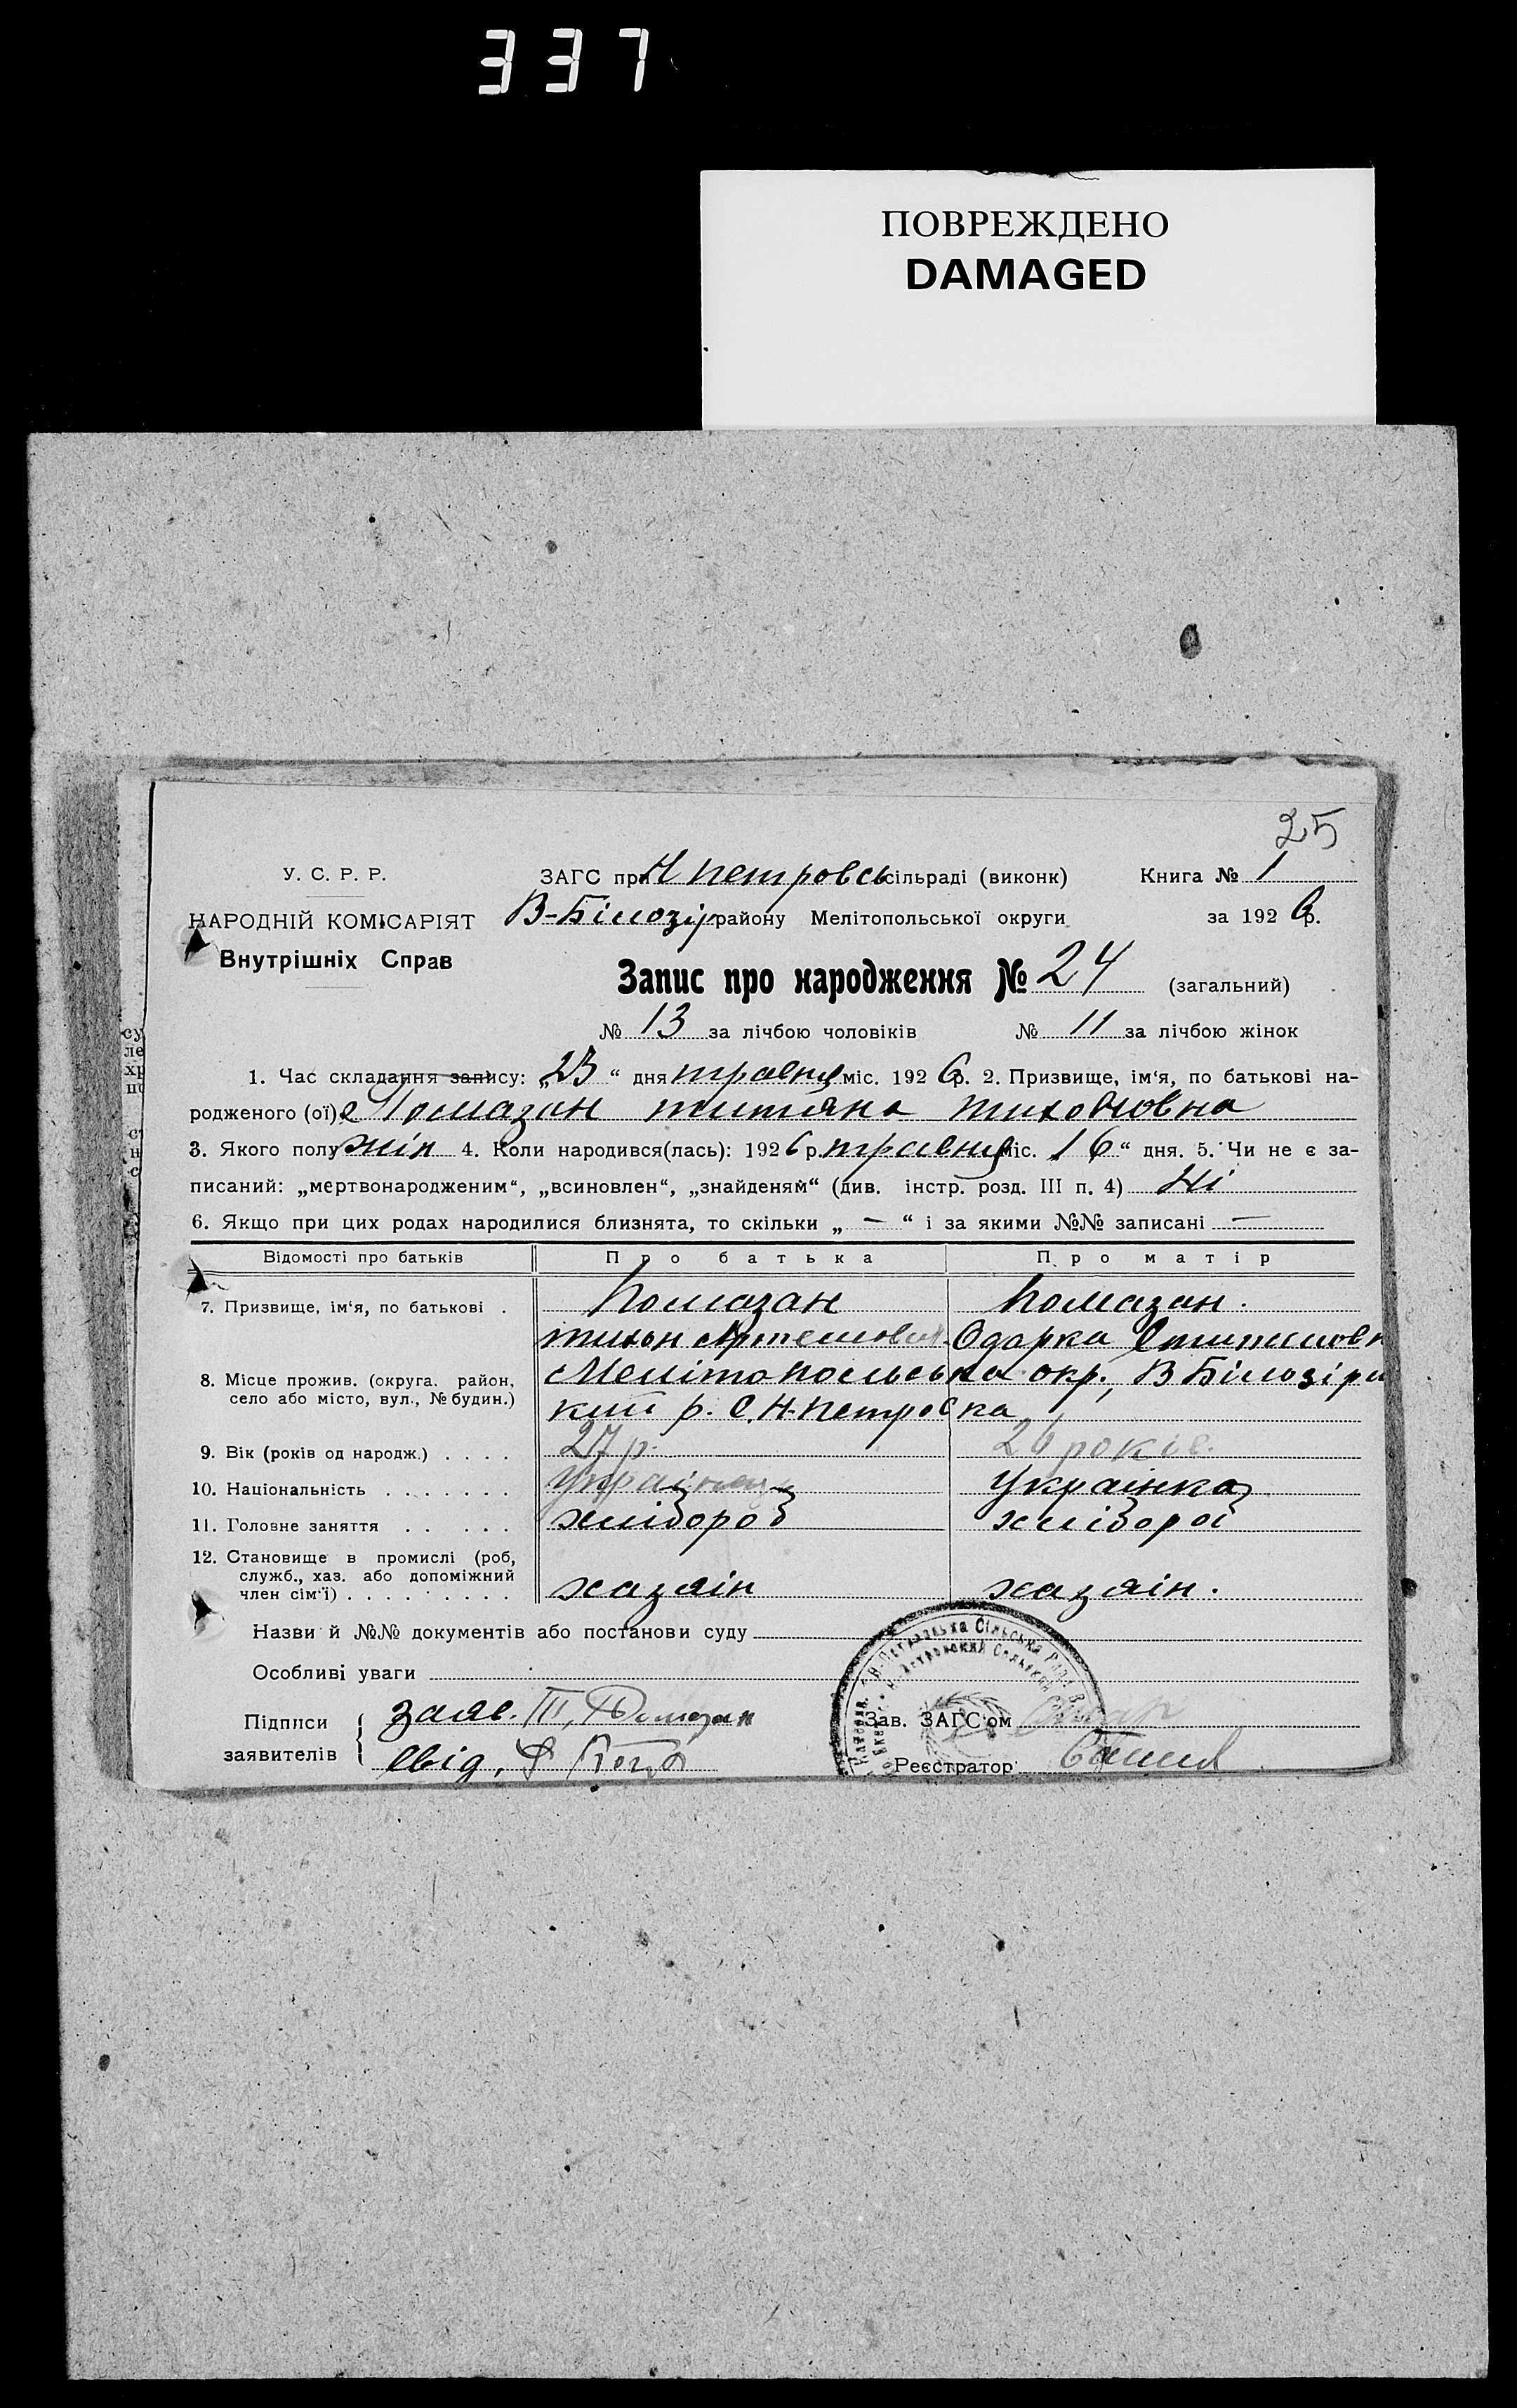 337
ПОВРЕЖДЕНО
DAMAGED
25
У. С. Р. Р.
ЗАГС при Н петровсь сільраді (виконк)
Книга № 1
НАРОДНІЙ КОМІСАРІЯТ
В-Білозір району Мелітопольської округи
за 1926 р.
Внутрішніх Справ
Запис про народження № 24 (загальний)
№ 13 за лічбою чоловіків № 11 за лічбою жінок
1. Час складання запису: „23“ дня травня міс. 1926 р. 2. Призвище, ім‘я, по батькові на-
родженого (ої) Помазан титяна тихоновна
3. Якого полу жін 4. Коли народився(лась): 1926 р. травня міс. 16“ дня. 5. Чи не є за-
писаний: „мертвонародженим“, „всиновлен“, „знайденям“ (див. інстр. розд. III п. 4) Ні
6. Якщо при цих родах народилися близнята, то скільки „ — “ і за якими №№ записані —
Відомості про батьків Про батька Про матір
7. Призвище, ім‘я, по батькові . Помазан Помазан.
тихон Артемович Одарка
8. Місце прожив. (округа, район, село або місто, вул., № будин.) Мелітопольська окр., В Білозірсь
кий р. С. Н-петровка
9. Вік (років од народж.) . . . . 27 р. 26 років.
10. Національність . . . . . . . Українец Українка
11. Головне заняття . . . . . хлібороб хлібороб
12. Становище в промислі (роб,
служб., хаз. або допоміжний
член сім‘ї) . . . . . . . . хазяін хазяін.
Назви й №№ документів або постанови суду
Особливі уваги
Підписи заяв. Помазан
заявителів свід,
Зав. ЗАГС‘ом
Реєстратор